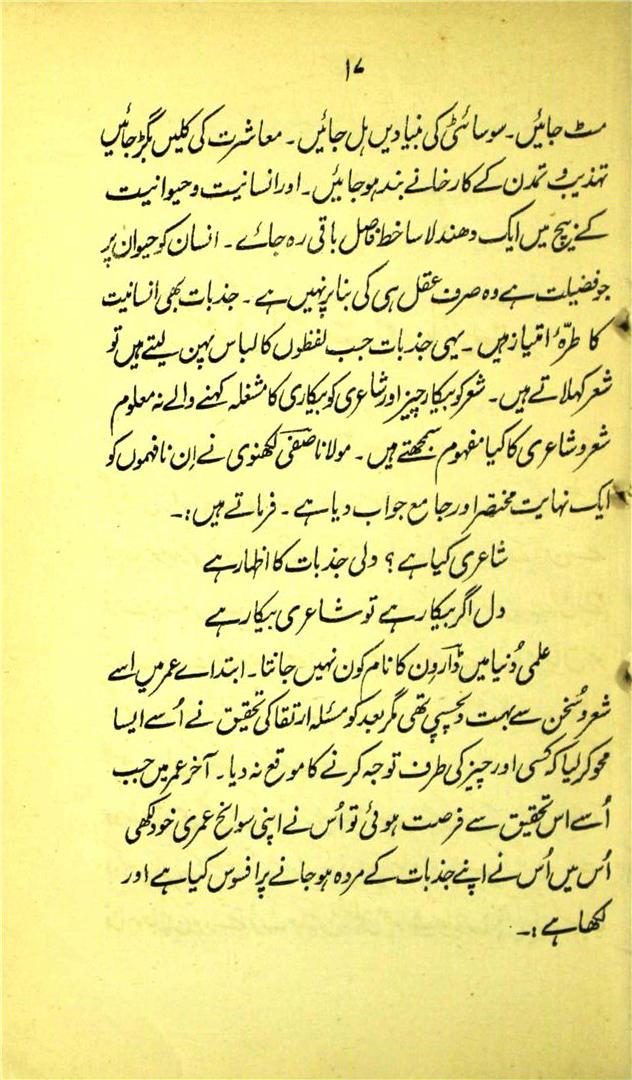 ۱۷
مٹ جائیں۔ سوسائٹی کی بنیادیں ہل جائیں۔ معاشرت کی کلیں بگڑ جائیں
تہذیب و تمدن کے کارخانے بند ہو جائیں۔ اور انسانیت و حیوانیت
کے بیچ میں ایک دھندلا سا خط فاصل باقی رہ جائے۔ انسان کو حیوان پر
جو فضیلت ہے وہ صرف عقل ہی کی بنا پر نہیں ہے۔ جذبات بھی انسانیت
کا طرۂ امتیاز ہیں۔ یہی جذبات جب لفظوں کا لباس پہن لیتے ہیں تو
شعر کہلاتے ہیں۔ شعر کو بیکار چیز اور شاعری کو بیکاری کا مشغلہ کہنے والے نہ معلوم
شعر و شاعری کا کیا مفہوم سمجھتے ہیں۔ مولانا صفیؔ لکھنوی نے اِن نافہموں کو
ایک نہایت مختصر اور جامع جواب دیا ہے۔ فرماتے ہیں:۔
شاعری کیا ہے؟ دلی جذبات کا اظہار ہے
دل اگر بیکار ہے تو شاعری بیکار ہے
علمی دُنیا میں ڈارون کا نام کون نہیں جانتا۔ ابتداے عمر میں اسے
شعر و سُخن سے بہت دلچسپی تھی مگر بعد کو مسئلہ ارتقا کی تحقیق نے اُسے ایسا
محو کر لیا کہ کسی اور چیز کی طرف توجہ کرنے کا موقع نہ دیا۔ آخر عمر میں جب
اُسے اس تحقیق سے فرصت ہوئی تو اُس نے اپنی سوانح عمری خود لکھی
اُس میں اُس نے اپنے جذبات کے مردہ ہو جانے پر افسوس کیا ہے اور
لکھا ہے:۔